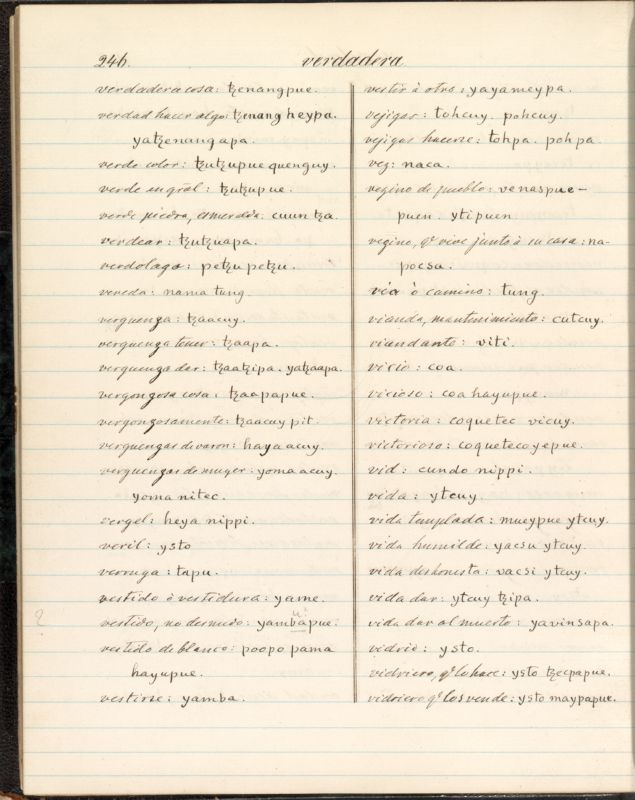 246.
verdadera
verdadera cosa: tzenangpue.
verdad hacer algo: tzenang heypa.
yatzenangapa.
verde color: tzutzupue quenguy.
verde en gral: tzutzupue.
verde piedra, esmeralda: cuun tza.
verdear: tzutzuapa.
verdolaga: petzu petzu.
vereda: nama tung
verguenza: tzaacuy.
verguenza tener: tzaapa.
verguenza dar: tzaatzipa. yatzaapa.
vergonzosa cosa: tzaapapue.
vergonzosamente: tzaacuy pit.
verguenzas de varon: haya acuy.
verguenzas de muger: yoma acuy.
yoma nitec.
vergel: heya nippi.
veril: ysto
verruga: tapu.
vestido ò vestidura: yame.
vestido, no desnudo: yambapue.
vestido de blanco: poopo pama
hayupue.
vestirse: yamba.
vestir à otro: yayameypa.
vejigas: tohcuy. pohcuy.
vejigas hacerse: tohpa. pohpa.
vez: naca.
vezino de pueblo: venaspue-
puen. ytipuen
vezino, qᵉ vive junto à su casa: na-
pocsa.
via ò camino: tung.
vianda, mantenimiento: cutcuy.
viandante: viti.
vicio: coa.
vicioso: coa hayupue.
victoria: coquetec vicuy.
victorioso: coquetecoyepue.
vid: cundo nippi.
vida: ytcuy.
vida templada: mueypue ytcuy.
vida humilde: yacsu ytcuy.
vida deshonesta: vacsi ytcuy.
vida dar: ytcuy tzipa.
vida dar al muerto: yavinsapa.
vidrio: ysto.
vidriero, qᵉ lo hace: ysto tzecpapue.
vidriero qᵉ los vende: ysto maypapue.